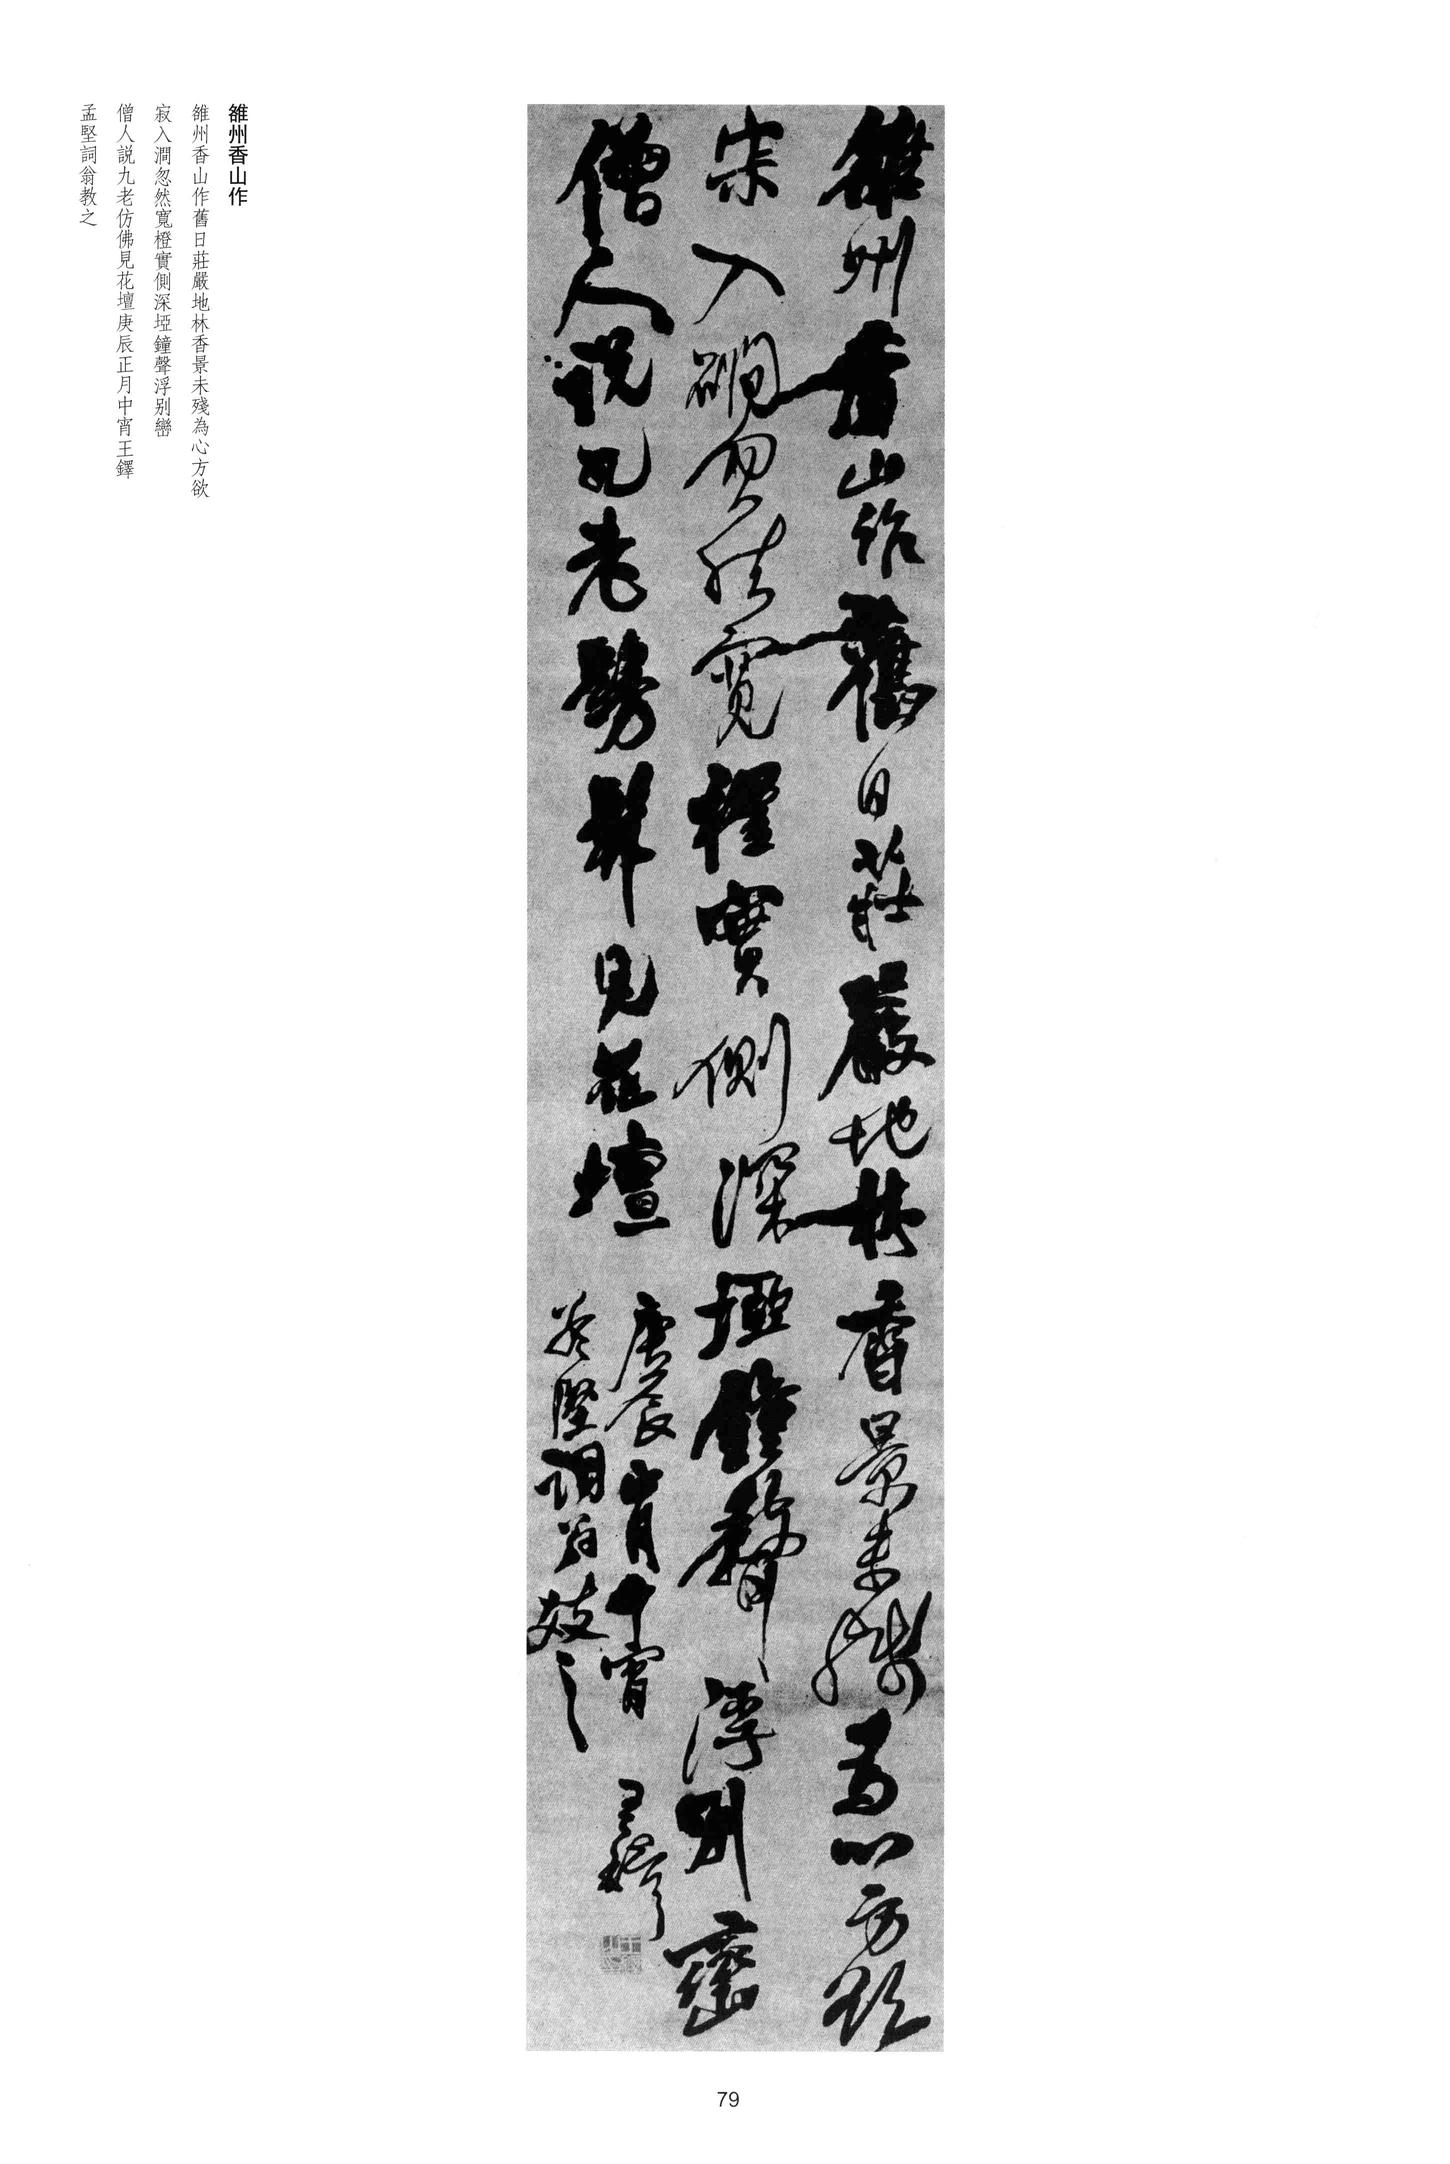 雒州香山作舊日莊嚴地林香景未殘為心方欲
寂入磵忽然寬橙實側深埡鐘聲浮別巒
僧人說九老髣髴見花壇
庚辰正月中宵王鐸
孟堅詞翁教之
雒州香山作
雒州香山作舊日莊嚴地林香景未殘為心方欲
寂入澗忽然寬橙實側深埡鐘聲浮別巒
僧人説九老仿佛見花壇庚辰正月中宵王鐸
孟堅詞翁教之
79